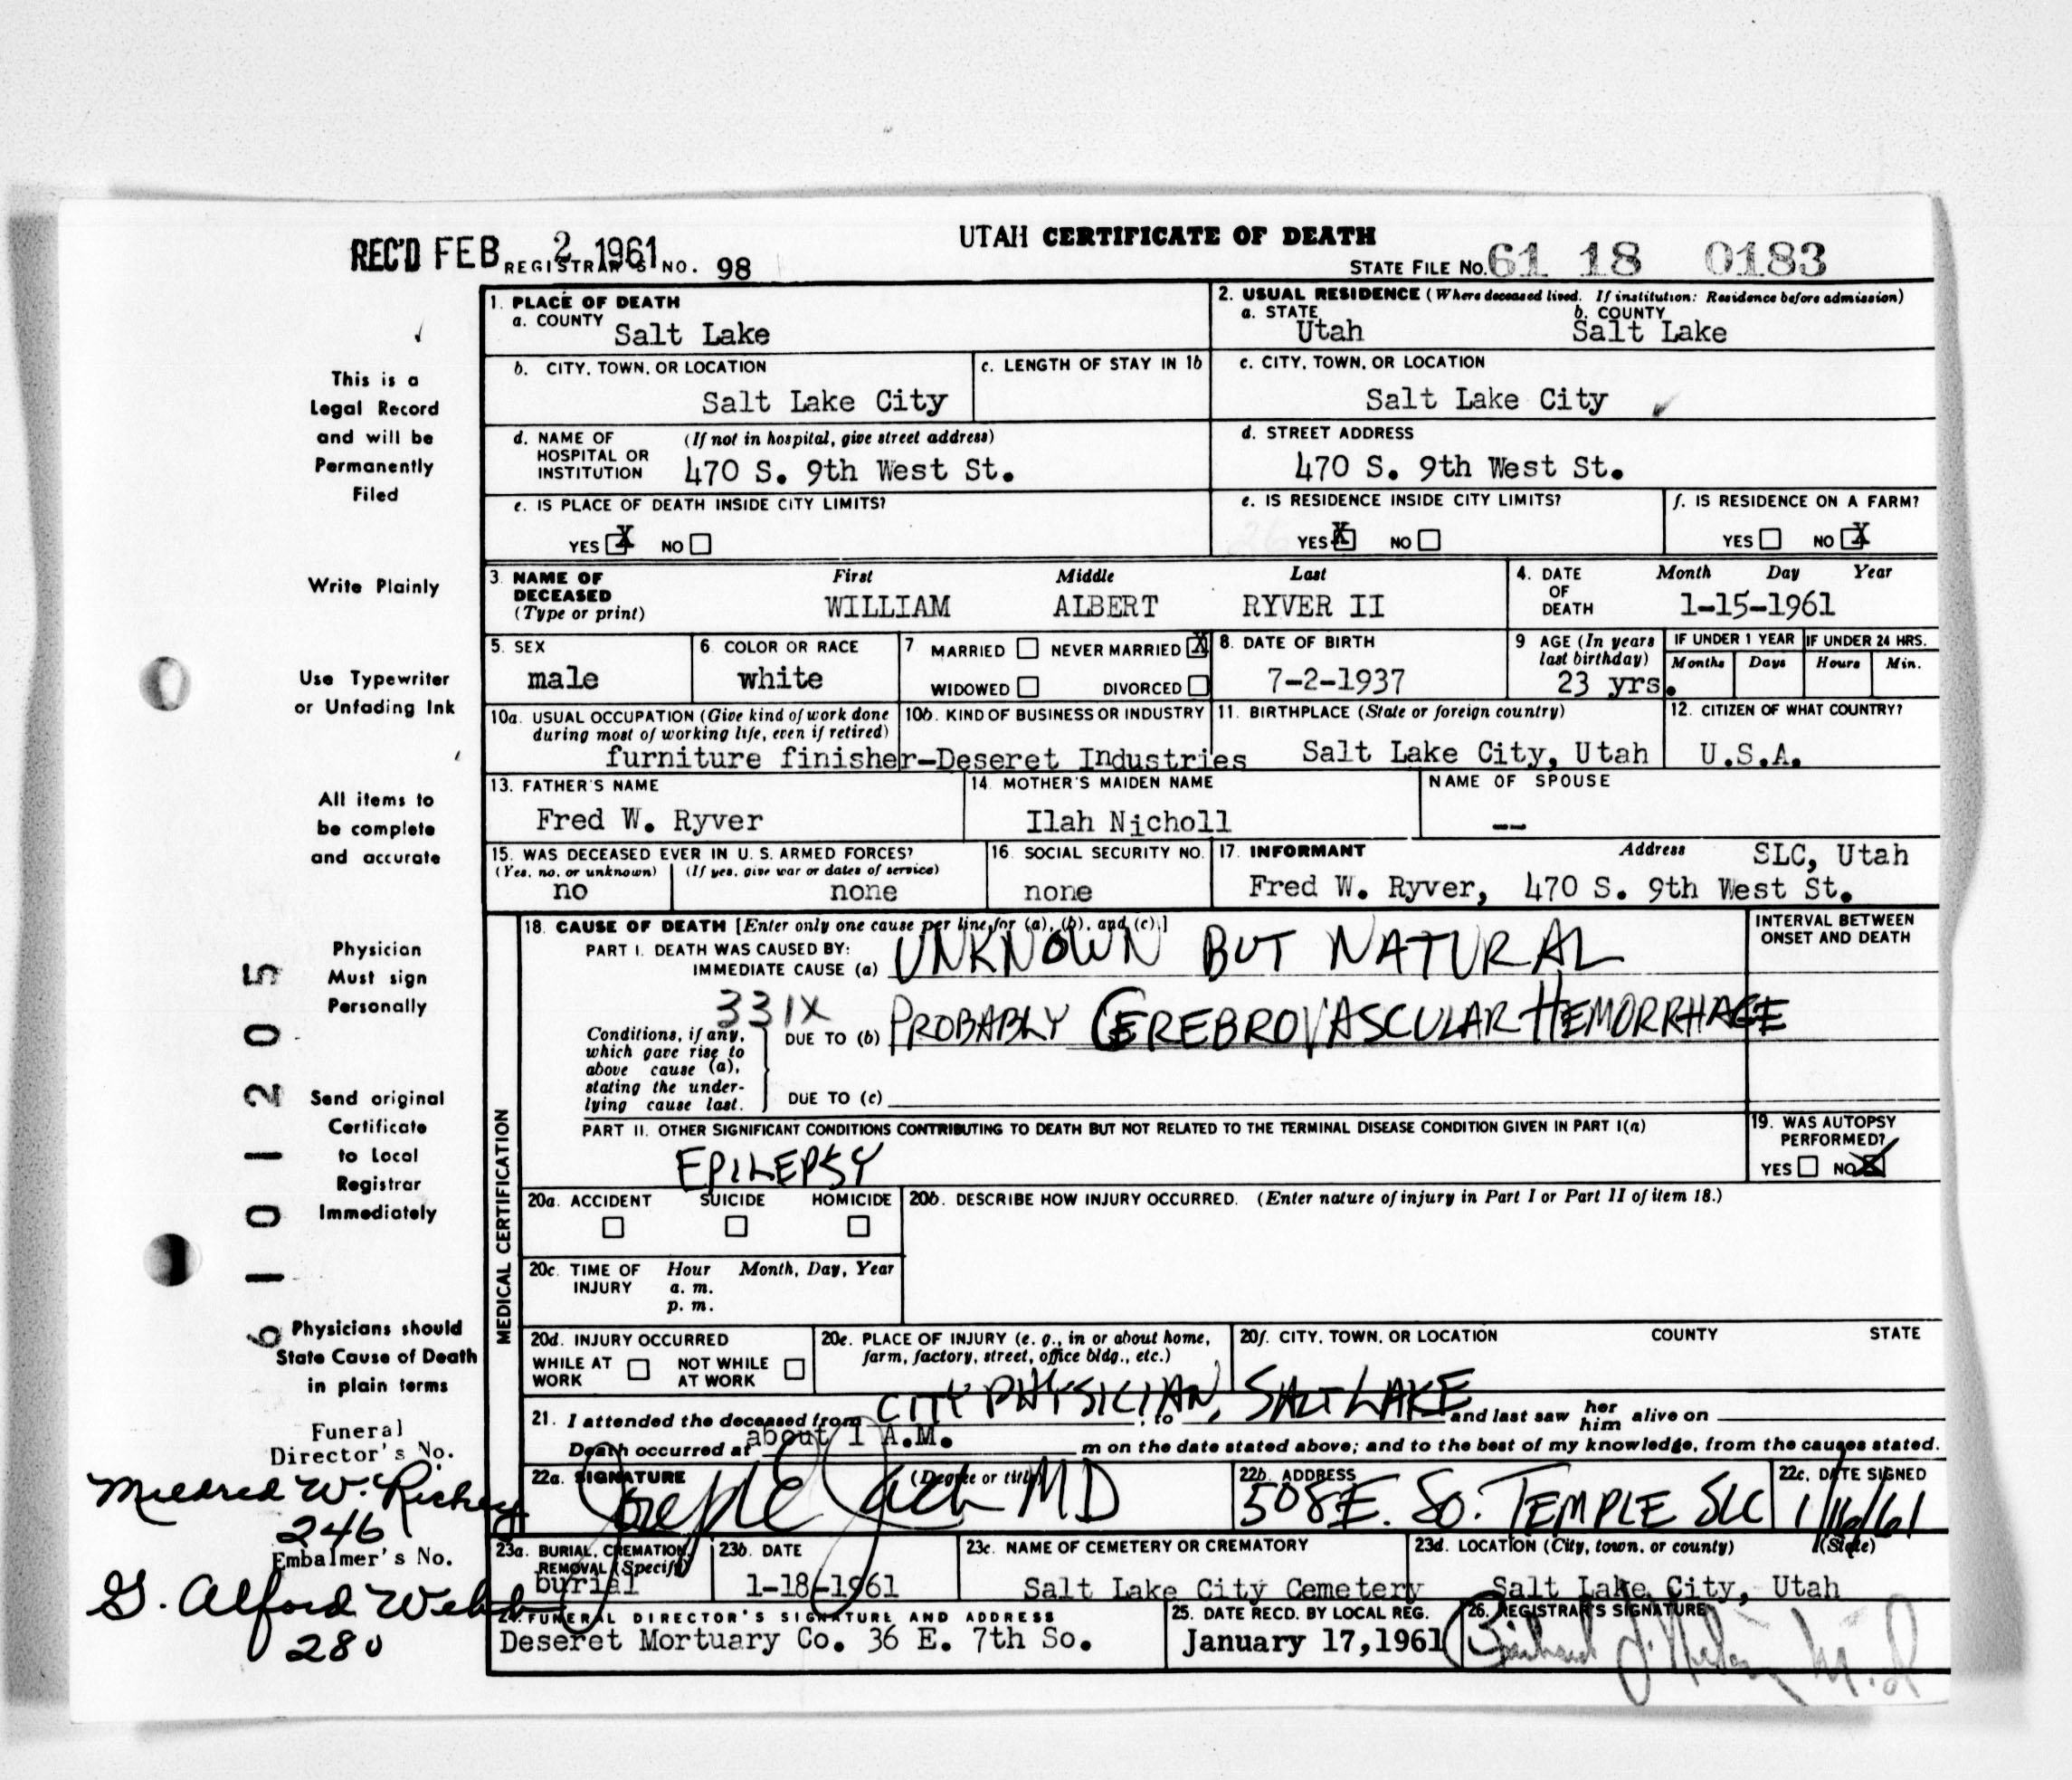 REC'D FEB 2 1961
UTAH CERTIFICATE OF DEATH
REGISTRAR'S NO. 98
STATE FILE NO. 61 18 0183
This is a
Legal Record
and will be
Permanently
Filed
Write Plainly
Use Typewriter
or Unfading Ink
All items to
be complete
and accurate
Physician
Must sign
Personally
Send original
Certificate
to Local
Registrar
Immediately
Physicians should
State Cause of Death
in plain terms
6101205
Funeral
Director's No.
Mildred W. Richey
246
Embalmer's No.
G. Alford Webb
280
1. PLACE OF DEATH
a. COUNTY Salt Lake
2. USUAL RESIDENCE (Where deceased lived. If institution: Residence before admission)
a. STATE Utah b. COUNTY Salt Lake
b. CITY, TOWN, OR LOCATION
Salt Lake City
c. LENGTH OF STAY IN 1b
c. CITY, TOWN, OR LOCATION
Salt Lake City
d. NAME OF HOSPITAL OR INSTITUTION (If not in hospital, give street address)
470 S. 9th West St.
d. STREET ADDRESS
470 S. 9th West St.
e. IS PLACE OF DEATH INSIDE CITY LIMITS?
YES X NO
e. IS RESIDENCE INSIDE CITY LIMITS?
YES X NO
f. IS RESIDENCE ON A FARM?
YES NO X
3. NAME OF DECEASED (Type or print)
First Middle Last
WILLIAM ALBERT RYVER II
4. DATE OF DEATH Month Day Year
1-15-1961
5. SEX
male
6. COLOR OR RACE
white
7 MARRIED NEVER MARRIED X
WIDOWED DIVORCED
8. DATE OF BIRTH
7-2-1937
9 AGE (In years last birthday)
23 yrs.
IF UNDER 1 YEAR IF UNDER 24 HRS.
Months Days Hours Min.
10a. USUAL OCCUPATION (Give kind of work done during most of working life, even if retired)
10b. KIND OF BUSINESS OR INDUSTRY
furniture finisher-Deseret Industries
11. BIRTHPLACE (State or foreign country)
Salt Lake City, Utah
12. CITIZEN OF WHAT COUNTRY?
U.S.A.
13. FATHER'S NAME
Fred W. Ryver
14. MOTHER'S MAIDEN NAME
Ilah Nicholl
NAME OF SPOUSE
--
15. WAS DECEASED EVER IN U. S. ARMED FORCES?
(Yes, no, or unknown) (If yes, give war or dates of service)
no none
16. SOCIAL SECURITY NO.
none
17. INFORMANT Address SLC, Utah
Fred W. Ryver, 470 S. 9th West St.
MEDICAL CERTIFICATION
18. CAUSE OF DEATH [Enter only one cause per line for (a), (b), and (c).]
PART I. DEATH WAS CAUSED BY:
IMMEDIATE CAUSE (a) UNKNOWN BUT NATURAL
INTERVAL BETWEEN ONSET AND DEATH
331X
Conditions, if any, which gave rise to above cause (a), stating the underlying cause last.
DUE TO (b) PROBABLY CEREBROVASCULAR HEMORRHAGE
DUE TO (c)
PART II. OTHER SIGNIFICANT CONDITIONS CONTRIBUTING TO DEATH BUT NOT RELATED TO THE TERMINAL DISEASE CONDITION GIVEN IN PART I(a)
EPILEPSY
19. WAS AUTOPSY PERFORMED?
YES NO X
20a. ACCIDENT SUICIDE HOMICIDE
20b. DESCRIBE HOW INJURY OCCURRED. (Enter nature of injury in Part I or Part II of item 18.)
20c. TIME OF INJURY Hour Month, Day, Year
a. m.
p. m.
20d. INJURY OCCURRED
WHILE AT WORK NOT WHILE AT WORK
20e. PLACE OF INJURY (e. g., in or about home, farm, factory, street, office bldg., etc.)
20f. CITY, TOWN, OR LOCATION COUNTY STATE
21. I attended the deceased from CITY PHYSICIAN, to SALT LAKE and last saw her him alive on
Death occurred at about 1 A.M. m on the date stated above; and to the best of my knowledge, from the causes stated.
22a. SIGNATURE (Degree or title)
Joseph E Jack MD
22b. ADDRESS
508 E. SO. TEMPLE SLC
22c. DATE SIGNED
1/16/61
23a. BURIAL, CREMATION, REMOVAL (Specify)
burial
23b. DATE
1-18-1961
23c. NAME OF CEMETERY OR CREMATORY
Salt Lake City Cemetery
23d. LOCATION (City, town, or county) (State)
Salt Lake City, Utah
24. FUNERAL DIRECTOR'S SIGNATURE AND ADDRESS
Deseret Mortuary Co. 36 E. 7th So.
25. DATE RECD. BY LOCAL REG.
January 17,1961
26. REGISTRAR'S SIGNATURE